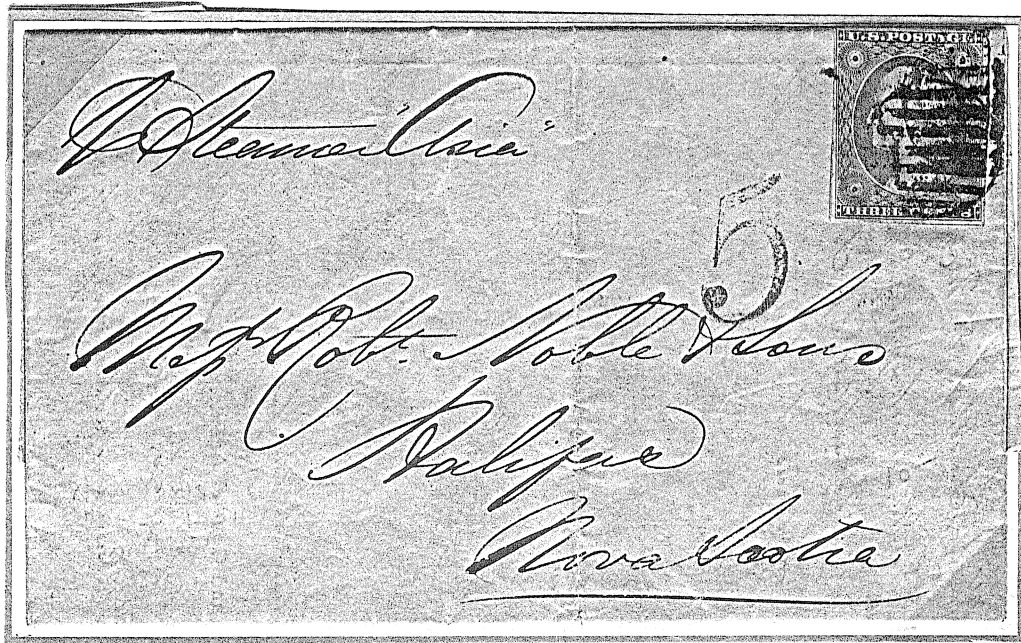 U.S. POSTAGE
THREE CENTS
p Steamer "Asia"
5
Messrs Robt. Noble & Sons
Halifax
Nova Scotia